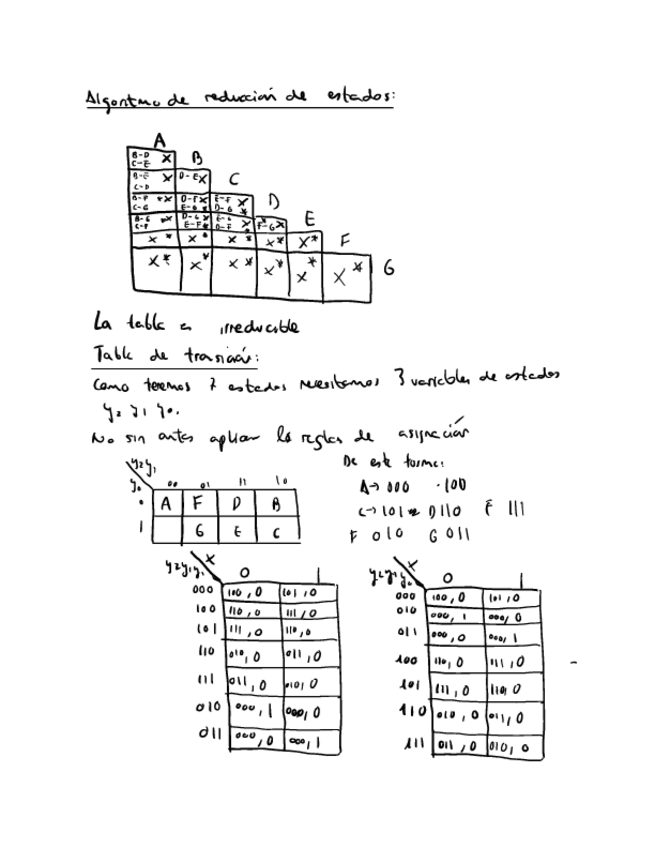 Algoritmo de reducción de estados:
A
B-D X B
C-E
B-E X D-E X C
C-D
B-F *X D-F X E-F X D
C-G E-G X D-G *
B-G *X D-G X E-G X F-G X E
C-F E-F X D-F
X * X * X * X * X * F
X * X * X * X * X * X * G
La tabla es irreducible
Tabla de transición:
Como tenemos 7 estados necesitamos 3 variables de estados
y2 y1 y0.
No sin antes aplicar las reglas de asignación
y2y1 De esta forma:
y0 00 01 11 10 A→000 ·100
0 A F D B C→101 D110 E 111
1 G E C F 010 G 011
y2y1y0 X 0 1
000 100,0 101,0
100 110,0 111,0
101 111,0 110,0
110 010,0 011,0
111 011,0 010,0
010 000,1 000,0
011 000,0 000,1
y2y1y0 X 0 1
000 100,0 101,0
010 000,1 000,0
011 000,0 000,1
100 110,0 111,0
101 111,0 110,0
110 010,0 011,0
111 011,0 010,0